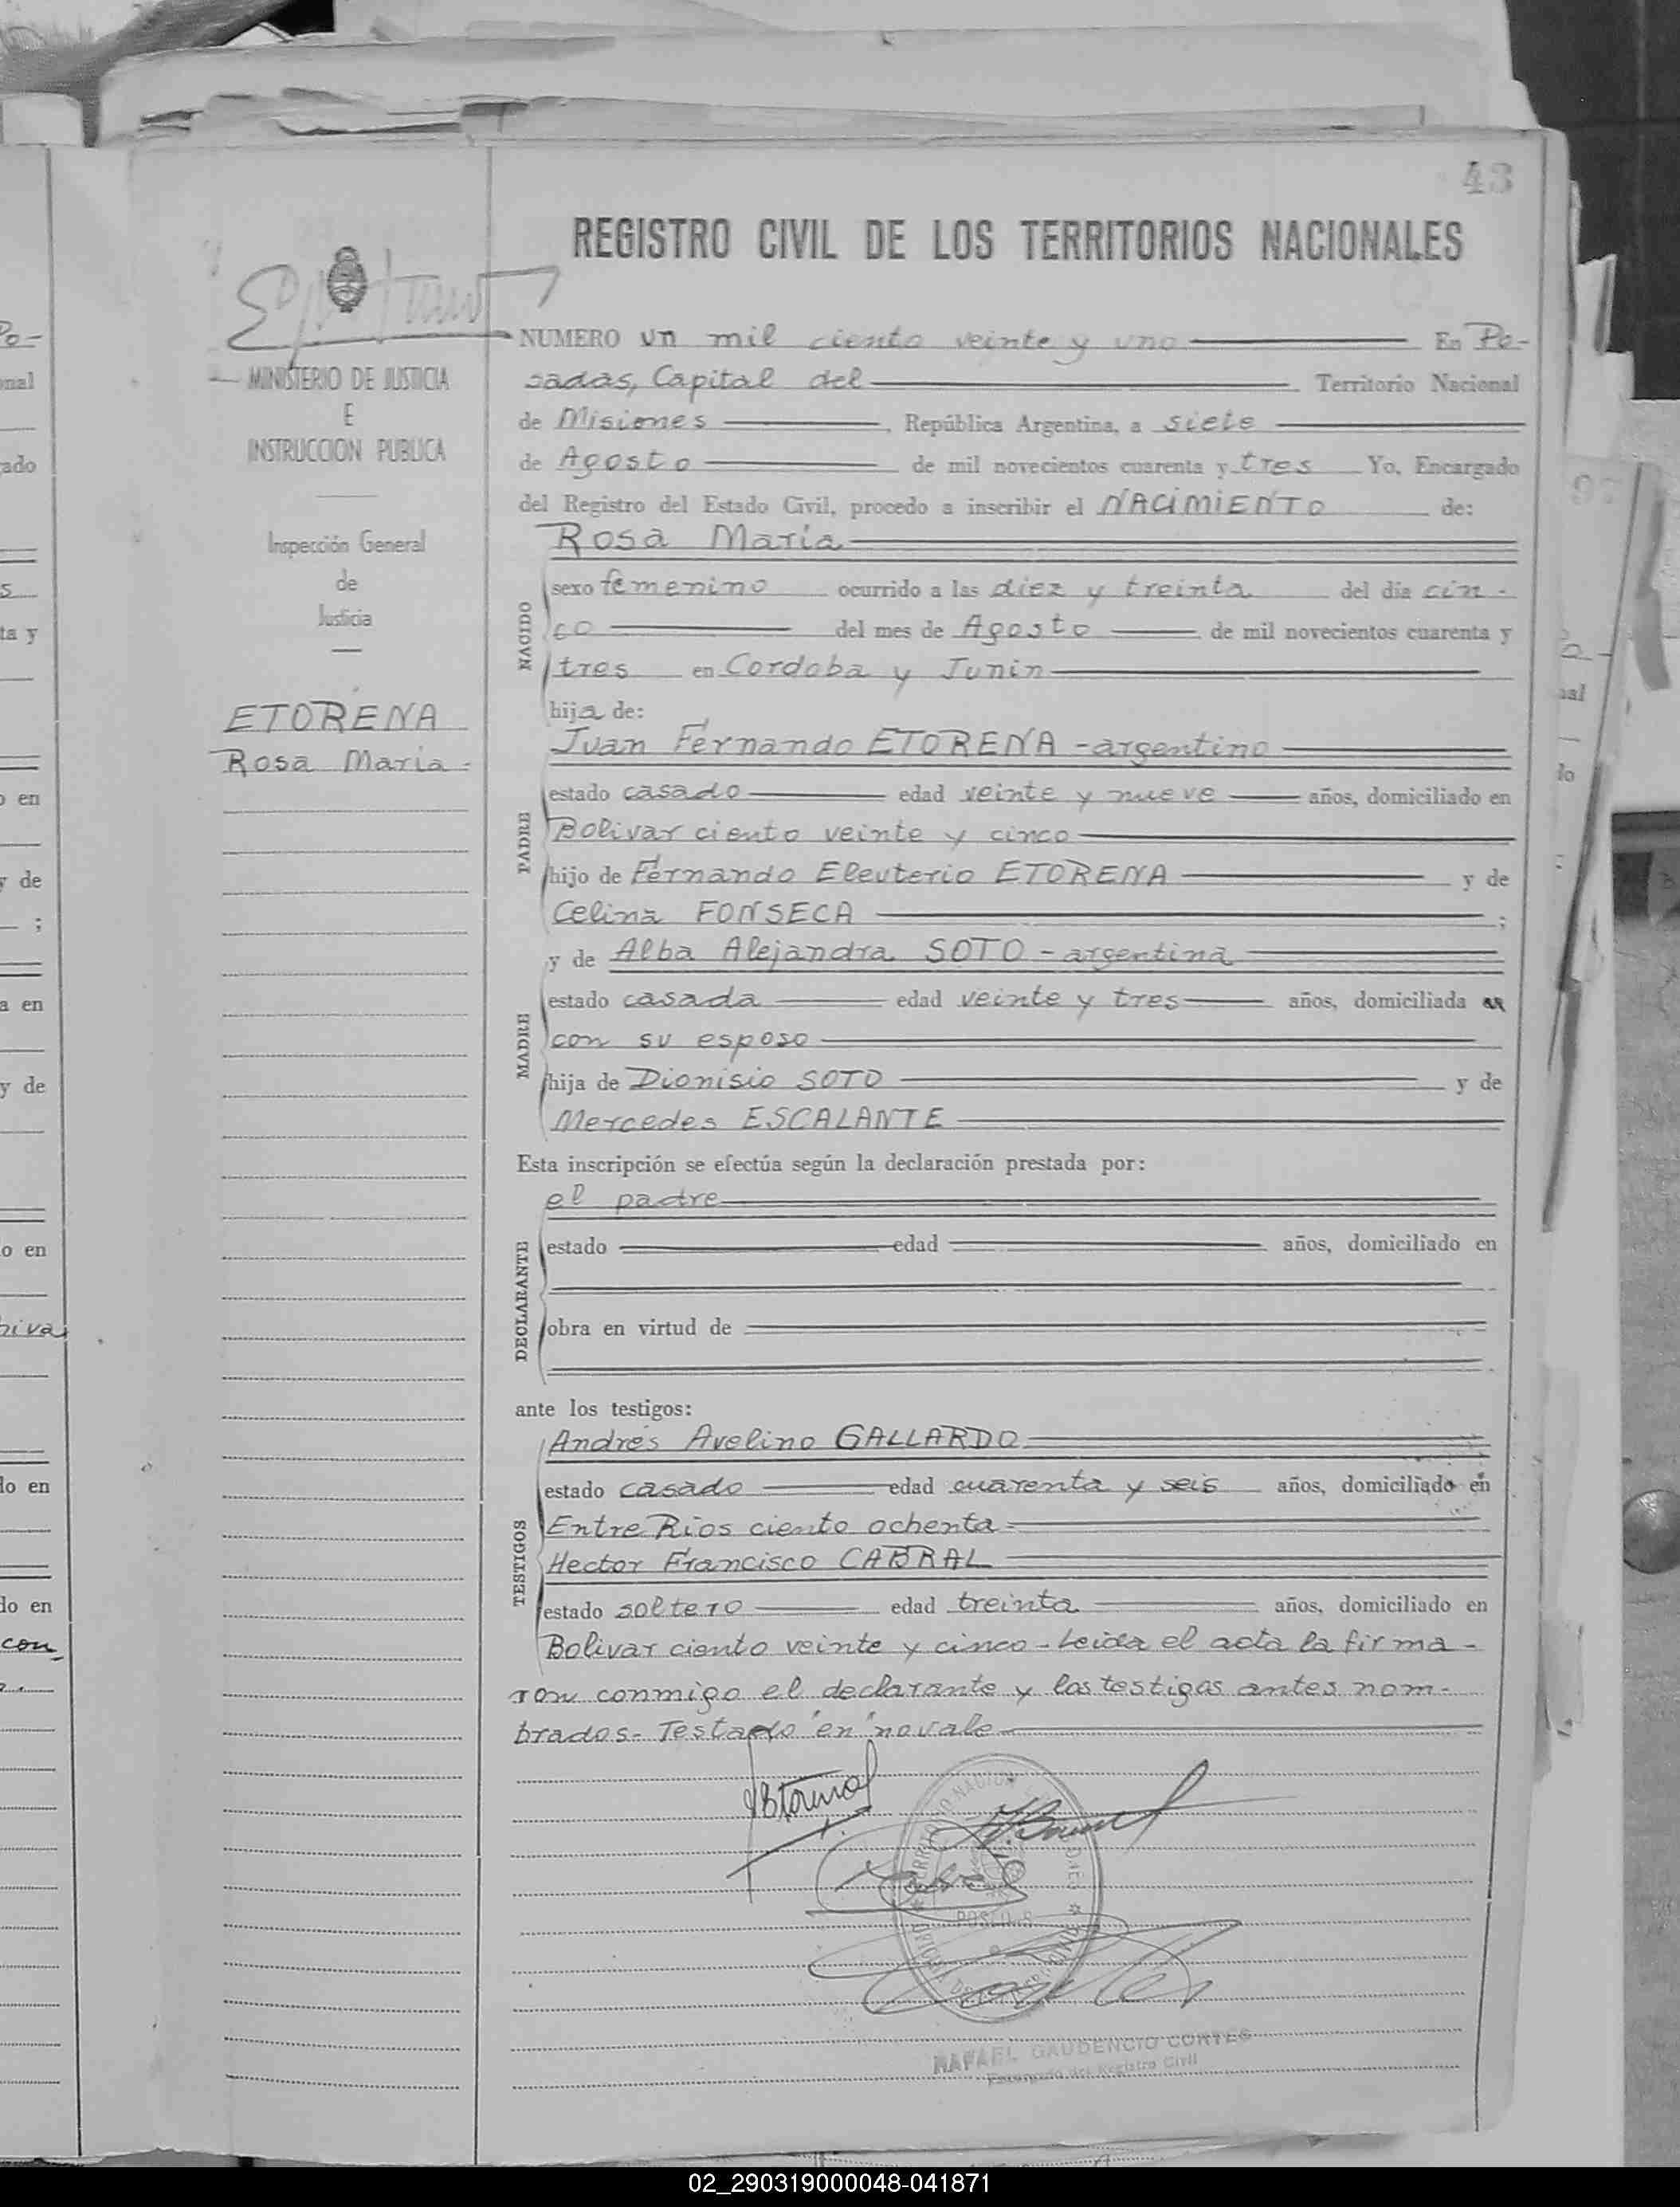 43
REGISTRO CIVIL DE LOS TERRITORIOS NACIONALES
MINISTERIO DE JUSTICIA
E
INSTRUCCION PUBLICA
Inspección General
de
Justicia
ETORENA
Rosa María
NUMERO un mil ciento veinte y uno En Po-
sadas, Capital del Territorio Nacional
de Misiones, República Argentina, a siete
de Agosto de mil novecientos cuarenta y tres Yo, Encargado
del Registro del Estado Civil, procedo a inscribir el NACIMIENTO de:
Rosa María
NACIDO
sexo femenino ocurrido a las diez y treinta del día cin-
co del mes de Agosto de mil novecientos cuarenta y
tres en Cordoba y Junin
hija de:
PADRE
Juan Fernando ETORENA - argentino
estado casado edad veinte y nueve años, domiciliado en
Bolivar ciento veinte y cinco
hijo de Fernando Eleuterio ETORENA y de
Celina FONSECA ;
y de Alba Alejandra SOTO - argentina
MADRE
estado casada edad veinte y tres años, domiciliada
con su esposo
hija de Dionisio SOTO y de
Mercedes ESCALANTE
Esta inscripción se efectúa según la declaración prestada por:
el padre
DECLARANTE
estado edad años, domiciliado en
obra en virtud de
ante los testigos:
TESTIGOS
Andrés Avelino GALLARDO
estado casado edad cuarenta y seis años, domiciliado en
Entre Rios ciento ochenta
Hector Francisco CABRAL
estado soltero edad treinta años, domiciliado en
Bolivar ciento veinte y cinco - Leida el acta la firma-
ron conmigo el declarante y los testigos antes nom-
brados- Testado "en" no vale
RAFAEL GAUDENCIO CORTES
Encargado del Registro Civil
02_290319000048-041871